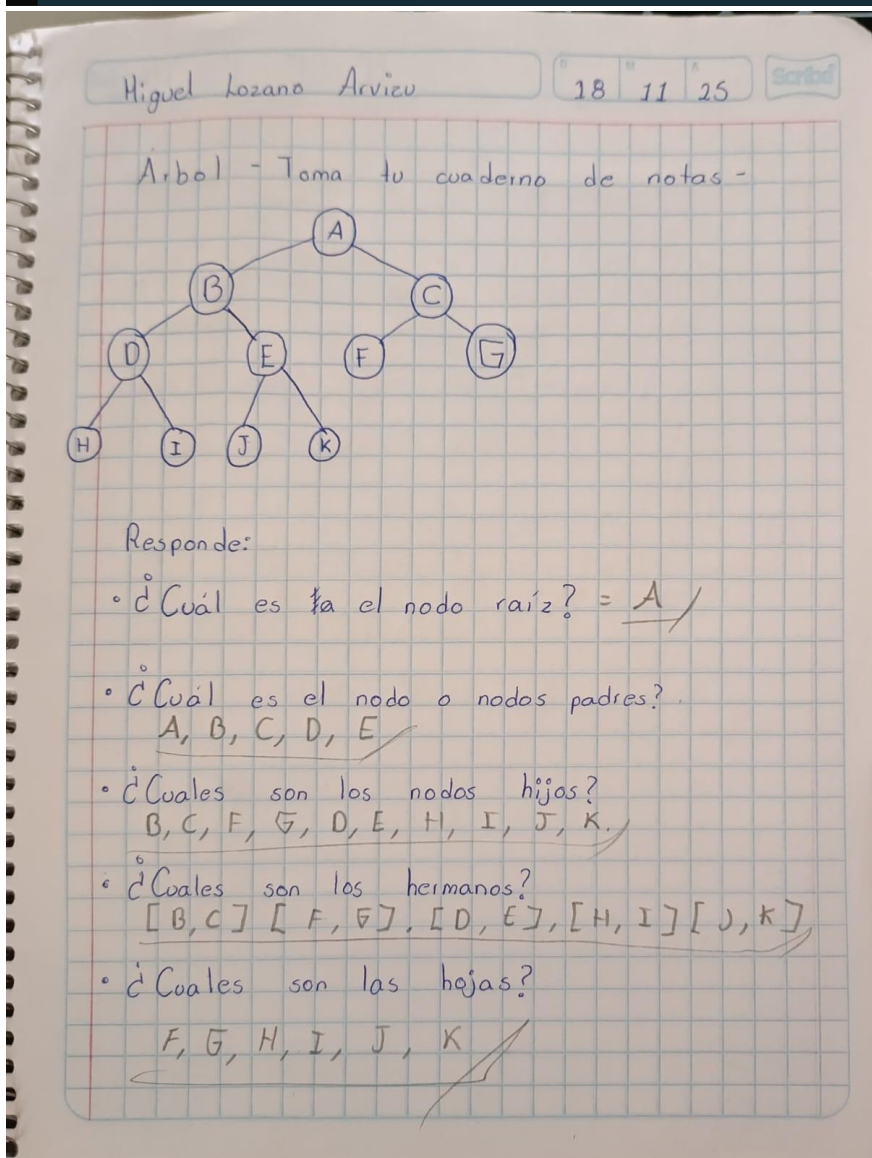 Miguel Lozano Arvieu
D M A
18 11 25
Scribd
Árbol - Toma tu cuaderno de notas -
A
B C
D E F G
H I J K
Responde:
• ¿Cuál es el nodo raíz? = A
• ¿Cuál es el nodo o nodos padres?
A, B, C, D, E
• ¿Cuales son los nodos hijos?
B, C, F, G, D, E, H, I, J, K.
• ¿Cuales son los hermanos?
[B, C] [F, G], [D, E], [H, I] [J, K]
• ¿Cuales son las hojas?
F, G, H, I, J, K